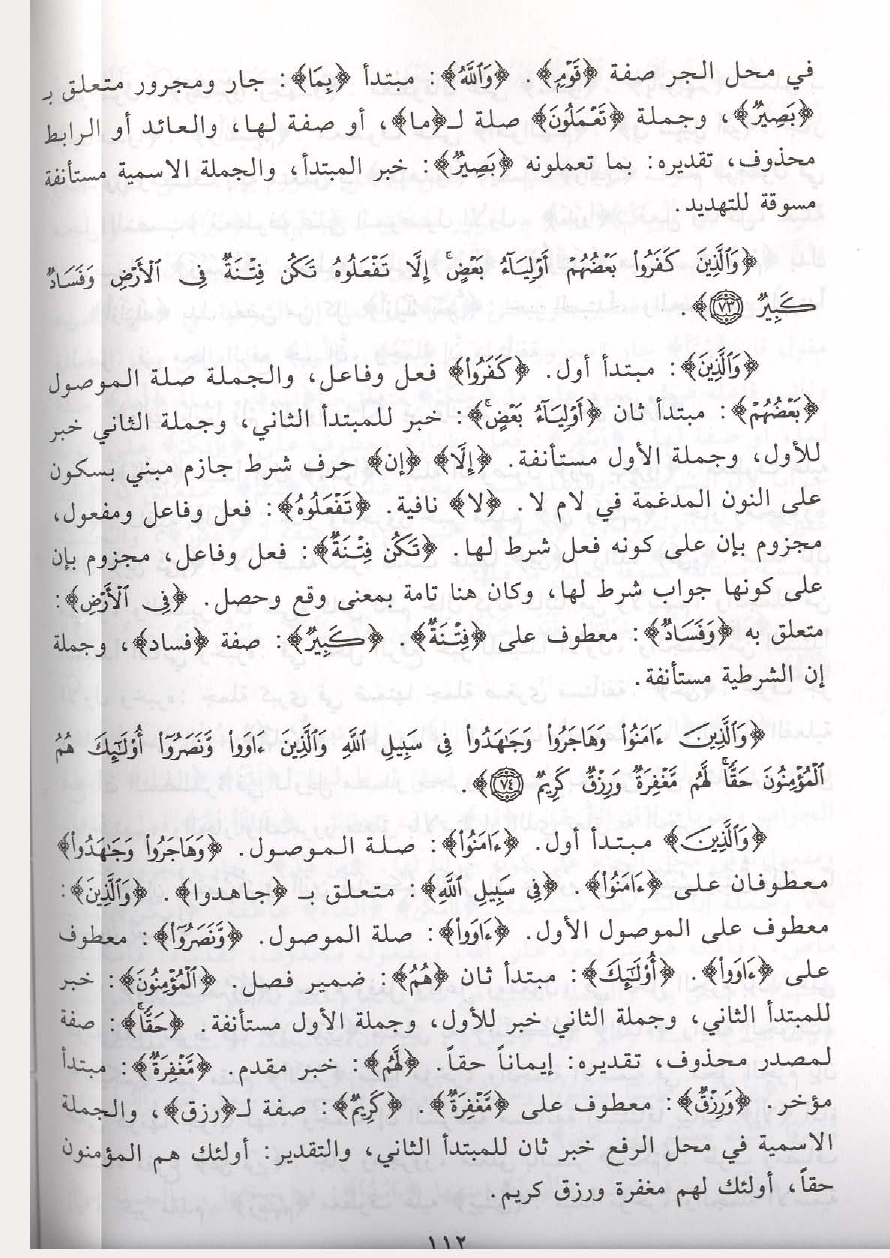 في محل الجر صفة ﴿قَوْمٍ﴾. ﴿وَٱللَّهُ﴾: مبتدأ ﴿بِمَا﴾: جار ومجرور متعلق بـ
﴿بَصِيرٌ﴾، وجملة ﴿تَعْمَلُونَ﴾ صلة لـ﴿ما﴾، أو صفة لها، والعائد أو الرابط
محذوف، تقديره: بما تعملونه ﴿بَصِيرٌ﴾: خبر المبتدأ، والجملة الاسمية مستأنفة
مسوقة للتهديد.
﴿وَٱلَّذِينَ كَفَرُوا۟ بَعْضُهُمْ أَوْلِيَآءُ بَعْضٍ ۚ إِلَّا تَفْعَلُوهُ تَكُن فِتْنَةٌ فِى ٱلْأَرْضِ وَفَسَادٌ
كَبِيرٌ ﴿٧٣﴾﴾.
﴿وَٱلَّذِينَ﴾: مبتدأ أول. ﴿كَفَرُوا۟﴾ فعل وفاعل، والجملة صلة الموصول
﴿بَعْضُهُمْ﴾: مبتدأ ثان ﴿أَوْلِيَآءُ بَعْضٍ ۚ﴾: خبر للمبتدأ الثاني، وجملة الثاني خبر
للأول، وجملة الأول مستأنفة. ﴿إِلَّا﴾ ﴿إن﴾ حرف شرط جازم مبني بسكون
على النون المدغمة في لام لا. ﴿لا﴾ نافية. ﴿تَفْعَلُوهُ﴾: فعل وفاعل ومفعول،
مجزوم بإن على كونه فعل شرط لها. ﴿تَكُن فِتْنَةٌ﴾: فعل وفاعل، مجزوم بإن
على كونها جواب شرط لها، وكان هنا تامة بمعنى وقع وحصل. ﴿فِى ٱلْأَرْضِ﴾:
متعلق به ﴿وَفَسَادٌ﴾: معطوف على ﴿فِتْنَةٌ﴾. ﴿كَبِيرٌ﴾: صفة ﴿فساد﴾، وجملة
إن الشرطية مستأنفة.
﴿وَٱلَّذِينَ ءَامَنُوا۟ وَهَاجَرُوا۟ وَجَٰهَدُوا۟ فِى سَبِيلِ ٱللَّهِ وَٱلَّذِينَ ءَاوَوا۟ وَّنَصَرُوٓا۟ أُو۟لَٰٓئِكَ هُمُ
ٱلْمُؤْمِنُونَ حَقًّا ۚ لَّهُم مَّغْفِرَةٌ وَرِزْقٌ كَرِيمٌ ﴿٧٤﴾﴾.
﴿وَٱلَّذِينَ﴾ مبتدأ أول. ﴿ءَامَنُوا۟﴾: صلة الموصول. ﴿وَهَاجَرُوا۟ وَجَٰهَدُوا۟﴾
معطوفان على ﴿ءَامَنُوا۟﴾. ﴿فِى سَبِيلِ ٱللَّهِ﴾: متعلق بـ ﴿جاهدوا﴾. ﴿وَٱلَّذِينَ﴾:
معطوف على الموصول الأول. ﴿ءَاوَوا۟﴾: صلة الموصول. ﴿وَّنَصَرُوٓا۟﴾: معطوف
على ﴿ءَاوَوا۟﴾. ﴿أُو۟لَٰٓئِكَ﴾: مبتدأ ثان ﴿هُمُ﴾: ضمير فصل. ﴿ٱلْمُؤْمِنُونَ﴾: خبر
للمبتدأ الثاني، وجملة الثاني خبر للأول، وجملة الأول مستأنفة. ﴿حَقًّا ۚ﴾: صفة
لمصدر محذوف، تقديره: إيماناً حقاً. ﴿لَّهُم﴾: خبر مقدم. ﴿مَّغْفِرَةٌ﴾: مبتدأ
مؤخر. ﴿وَرِزْقٌ﴾: معطوف على ﴿مَّغْفِرَةٌ﴾. ﴿كَرِيمٌ﴾: صفة لـ﴿رزق﴾، والجملة
الاسمية في محل الرفع خبر ثان للمبتدأ الثاني، والتقدير: أولئك هم المؤمنون
حقاً، أولئك لهم مغفرة ورزق كريم.
١١٢